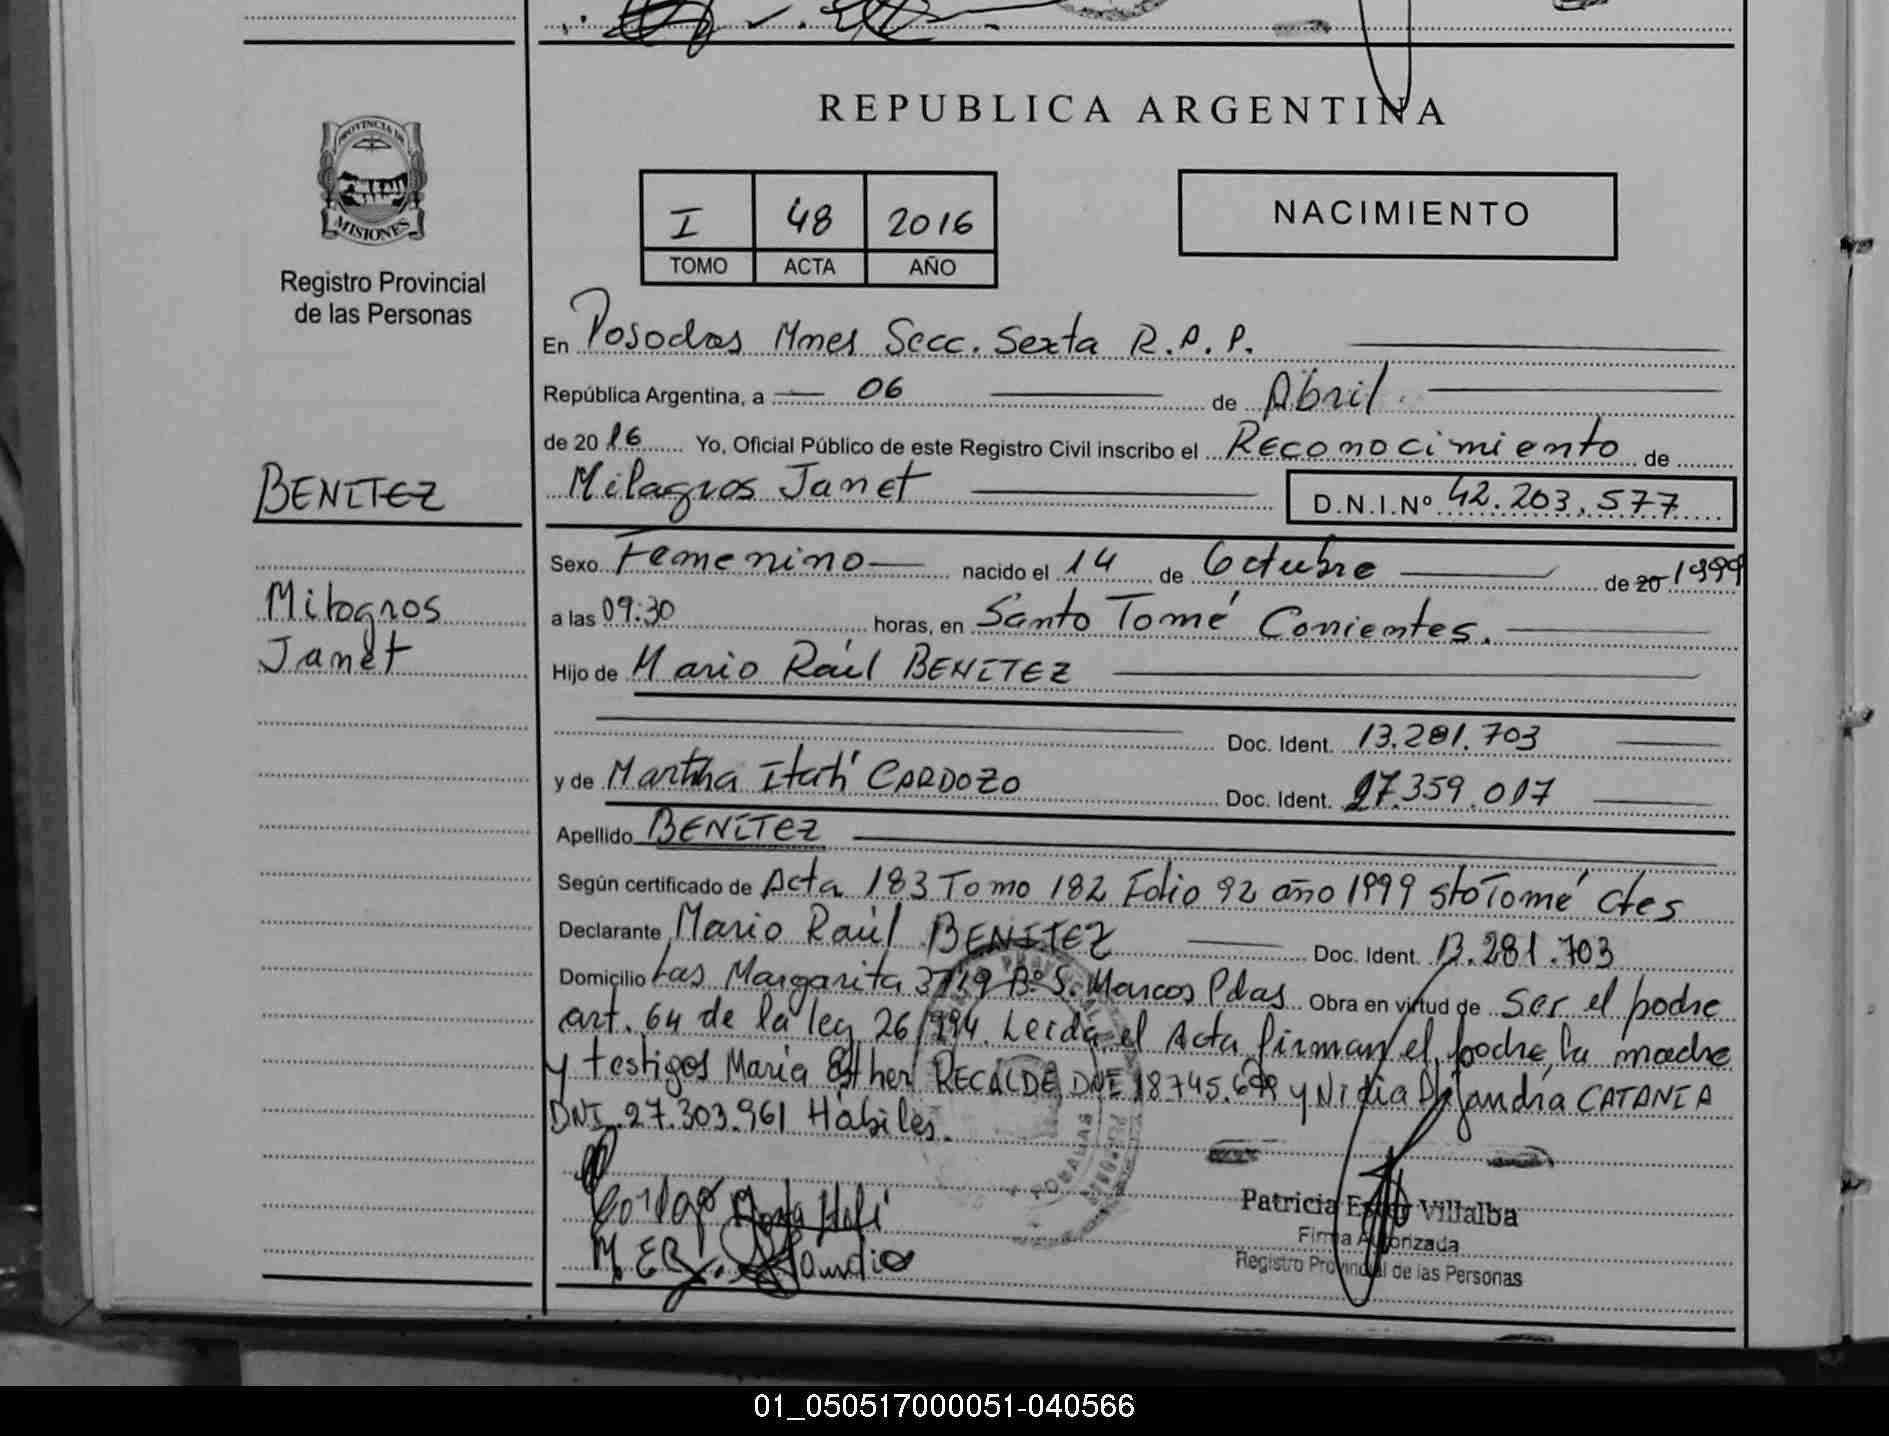 REPUBLICA ARGENTINA
PROVINCIA DE
MISIONES
Registro Provincial
de las Personas
I 48 2016
TOMO ACTA AÑO
NACIMIENTO
En Posadas Mnes Secc. Sexta R.P.P.
República Argentina, a 06 de Abril
de 20 16 Yo, Oficial Público de este Registro Civil inscribo el Reconocimiento de
BENITEZ
Milagros Janet D.N.I.Nº 42.203.577
Sexo Femenino nacido el 14 de Octubre de 20 1999
Milagros
Janet
a las 09:30 horas, en Santo Tomé Corrientes.
Hijo de Mario Raúl BENITEZ
Doc. Ident. 13.281.703
y de Martha Itatí CARDOZO Doc. Ident. 27.359.017
Apellido BENITEZ
Según certificado de Acta 183 Tomo 182 Folio 92 año 1999 Sto Tomé Ctes
Declarante Mario Raúl BENITEZ Doc. Ident. 13.281.703
Domicilio Las Margarita Bº S. Marcos Pdas Obra en virtud de ser el padre
art. 64 de la ley 26/994. Leída el Acta firman el padre, la madre
y testigos María Esther RECALDE DNI 18745.699 y Nidia CATANIA
DNI 27.303.961 Hábiles.
Patricia Villalba
Firma Autorizada
Registro Provincial de las Personas
01_050517000051-040566